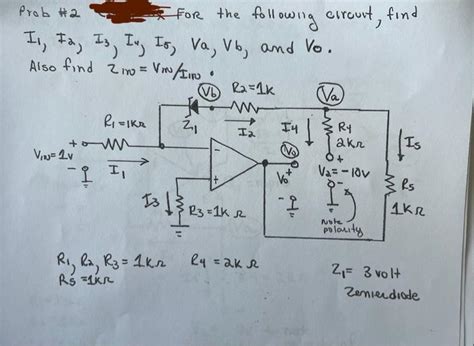 Prob #2 For the following circuit, find
I1, I2, I3, I4, I5, Va, Vb, and Vo.
Also find Zin = Vin/Iin.
Vb R2=1k Va
R1=1KΩ Z1 I2 I4 R4 2KΩ I5
Vin=1v I1 - + Vo Vo+ -
+ V2=-10v -
R5 1KΩ
I3 R3=1KΩ
Note polarity
R1, R2, R3 = 1KΩ R4 = 2KΩ
R5 = 1KΩ
Z1 = 3 volt
Zenierdiode